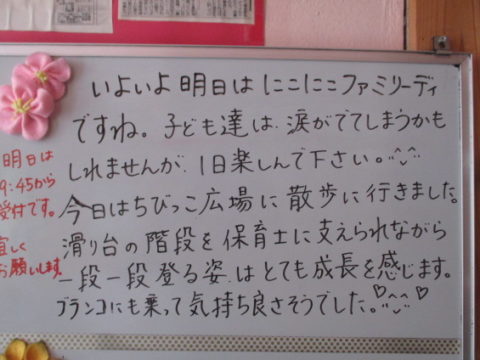 いよいよ明日はにこにこファミリーディ
ですね。子ども達は、涙がでてしまうかも
しれませんが、1日楽しんで下さい。
今日はちびっこ広場に散歩に行きました。
滑り台の階段を保育士に支えられながら
一段一段登る姿はとても成長を感じます。
ブランコにも乗って気持ち良さそうでした。
明日は
9:45から
受付です。
宜しく
お願いします。